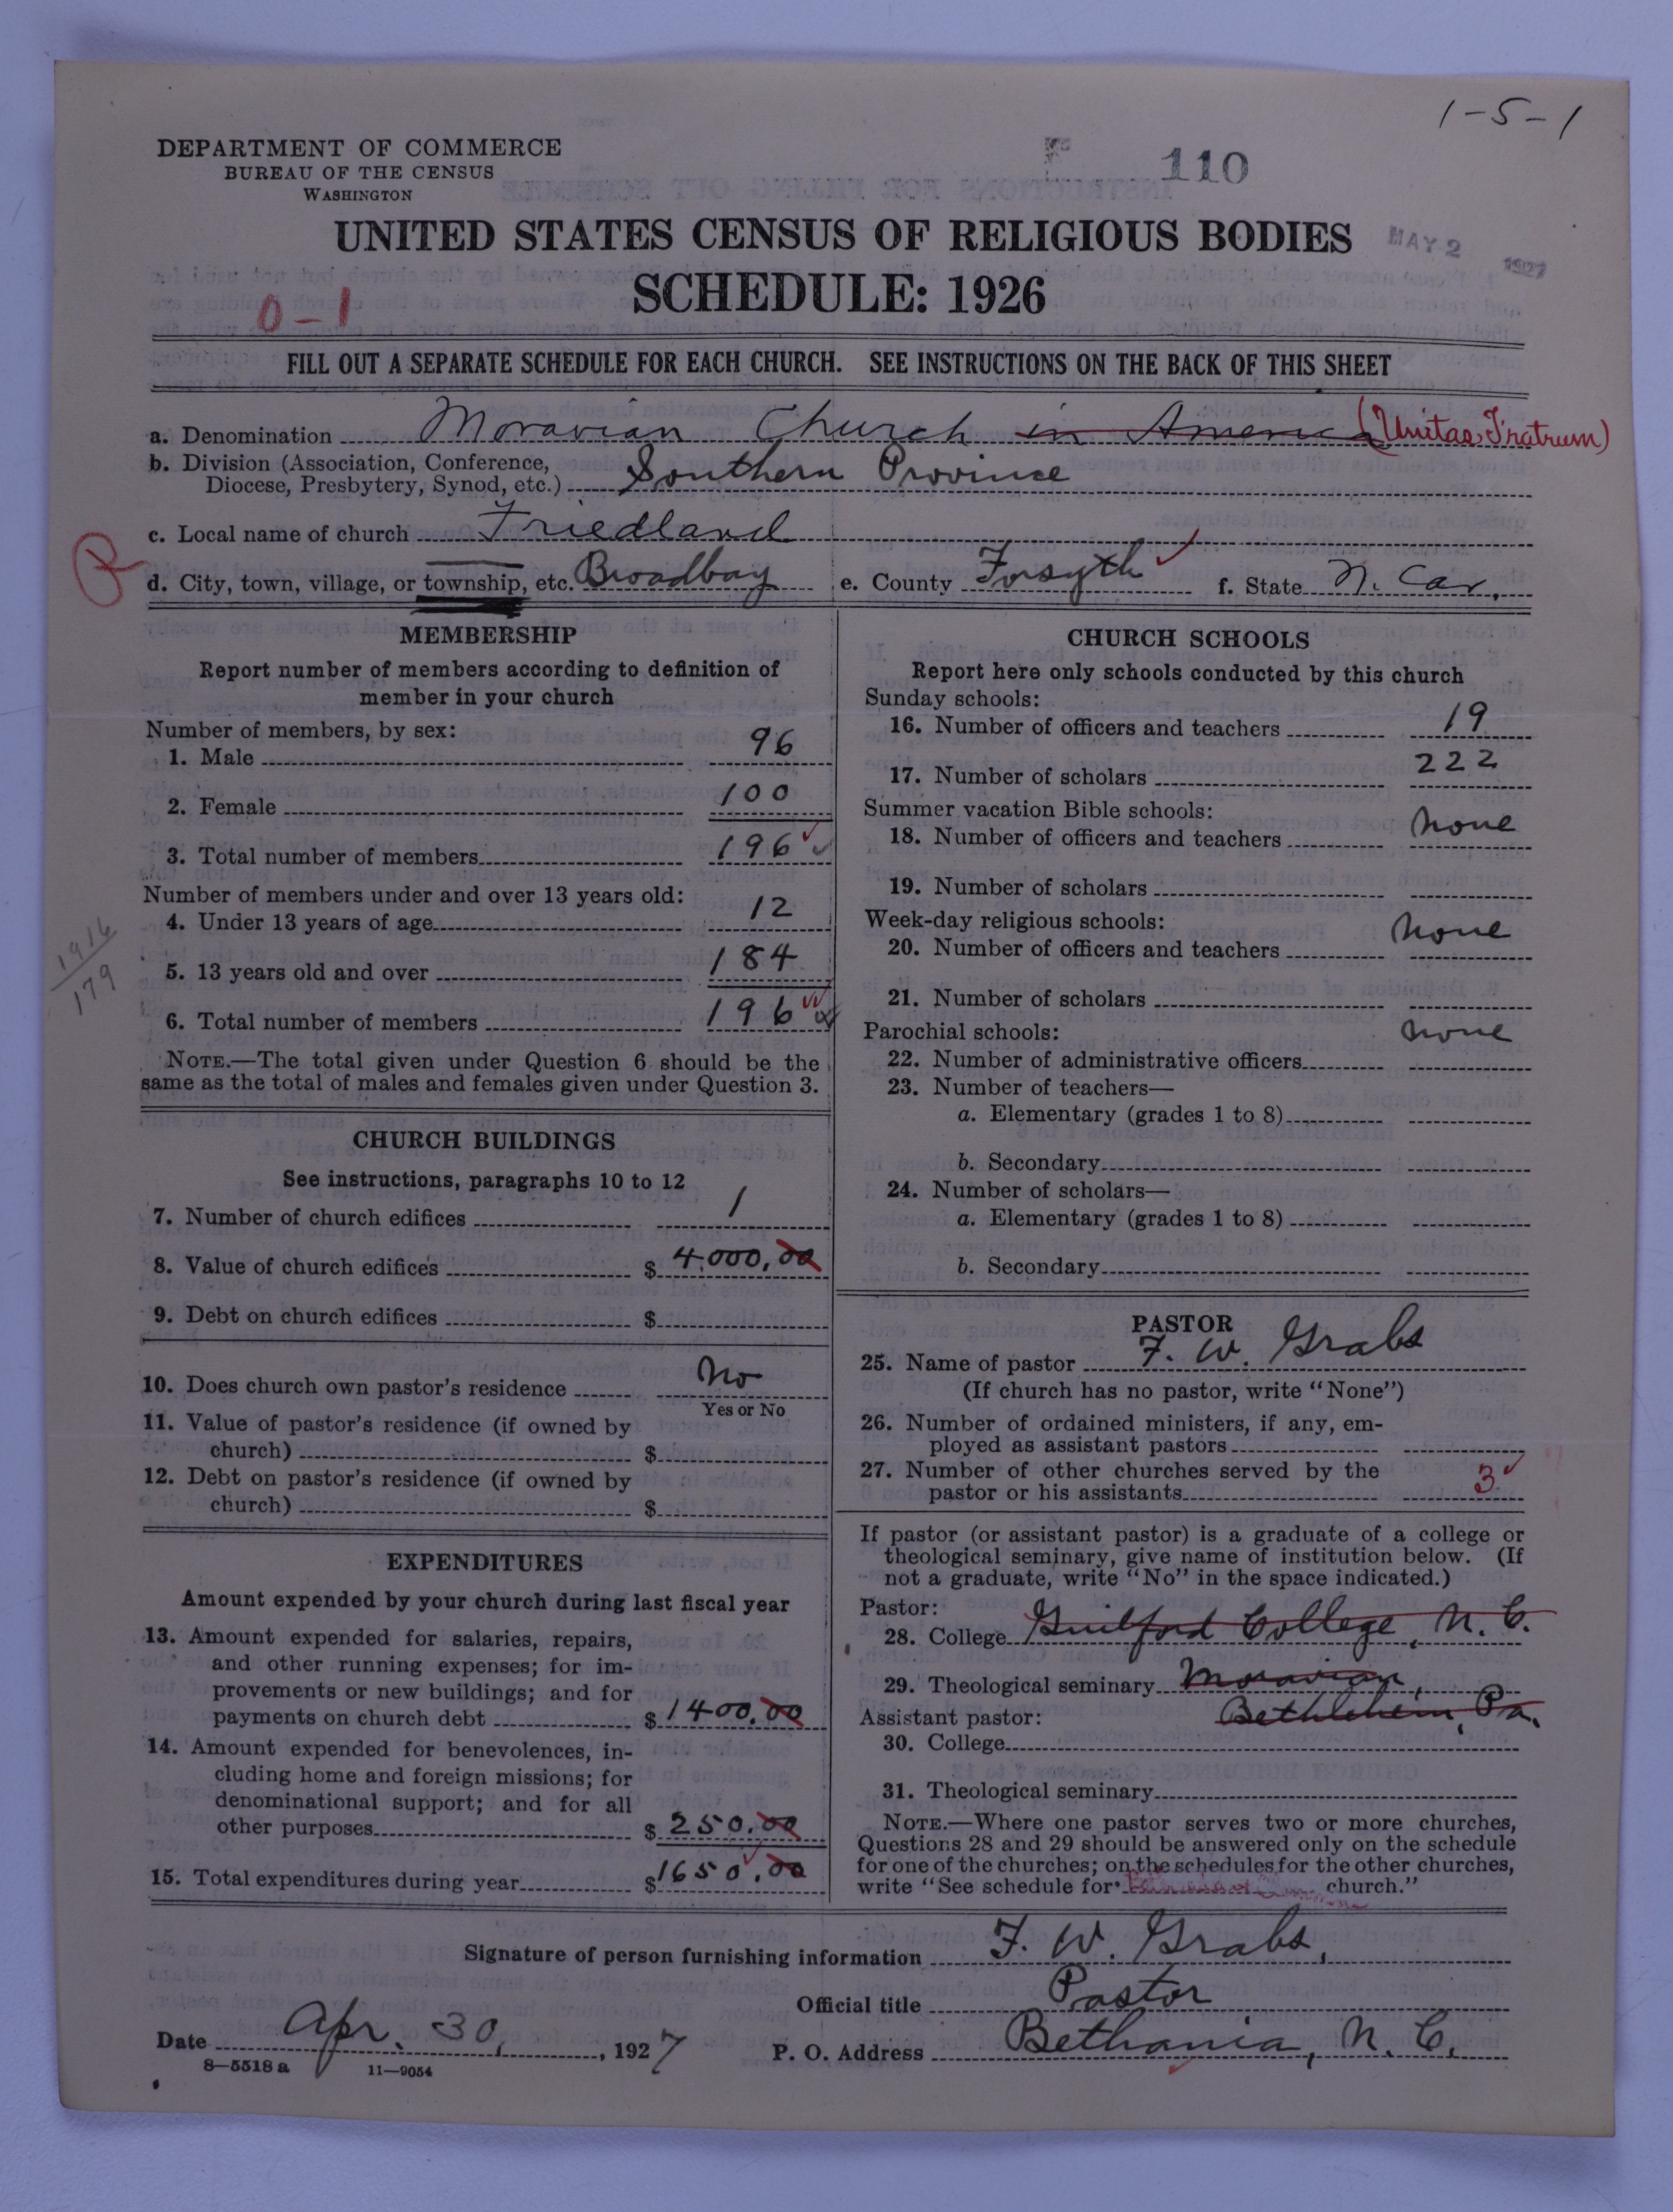 1-5-1
DEPARTMENT OF COMMERCE
BUREAU OF THE CENSUS
WASHINGTON
110
UNITED STATES CENSUS OF RELIGIOUS BODIES
MAY 2 1927
SCHEDULE: 1926
0-1
FILL OUT A SEPARATE SCHEDULE FOR EACH CHURCH. SEE INSTRUCTIONS ON THE BACK OF THIS SHEET
a. Denomination Moravian Church in America (Unitas Fratrum)
b. Division (Association, Conference,
Diocese, Presbytery, Synod, etc.) Southern Province
c. Local name of church Friedland
R
d. City, town, village, or township, etc. Broadbay e. County Forsyth f. State N. Car.
MEMBERSHIP
Report number of members according to definition of
member in your church
Number of members, by sex:
1. Male 96
2. Female 100
3. Total number of members 196
Number of members under and over 13 years old:
4. Under 13 years of age 12
1916
179
5. 13 years old and over 184
6. Total number of members 196
NOTE.—The total given under Question 6 should be the
same as the total of males and females given under Question 3.
CHURCH BUILDINGS
See instructions, paragraphs 10 to 12
7. Number of church edifices 1
8. Value of church edifices $ 4.000,00
9. Debt on church edifices $
10. Does church own pastor's residence No
Yes or No
11. Value of pastor's residence (if owned by
church) $
12. Debt on pastor's residence (if owned by
church) $
EXPENDITURES
Amount expended by your church during last fiscal year
13. Amount expended for salaries, repairs,
and other running expenses; for im-
provements or new buildings; and for
payments on church debt $ 1400.00
14. Amount expended for benevolences, in-
cluding home and foreign missions; for
denominational support; and for all
other purposes $ 250.00
15. Total expenditures during year $ 1650.00
CHURCH SCHOOLS
Report here only schools conducted by this church
Sunday schools:
16. Number of officers and teachers 19
17. Number of scholars 222
Summer vacation Bible schools:
18. Number of officers and teachers none
19. Number of scholars
Week-day religious schools:
20. Number of officers and teachers none
21. Number of scholars
Parochial schools:
none
22. Number of administrative officers
23. Number of teachers—
a. Elementary (grades 1 to 8)
b. Secondary
24. Number of scholars—
a. Elementary (grades 1 to 8)
b. Secondary
PASTOR
25. Name of pastor F. W. Grabs
(If church has no pastor, write "None")
26. Number of ordained ministers, if any, em-
ployed as assistant pastors
27. Number of other churches served by the
pastor or his assistants 3
If pastor (or assistant pastor) is a graduate of a college or
theological seminary, give name of institution below. (If
not a graduate, write "No" in the space indicated.)
Pastor:
28. College Guilford College, N. C.
29. Theological seminary Moravian,
Bethlehem, Pa.
Assistant pastor:
30. College
31. Theological seminary
NOTE.—Where one pastor serves two or more churches,
Questions 28 and 29 should be answered only on the schedule
for one of the churches; on the schedules for the other churches,
write "See schedule for church."
Signature of person furnishing information F. W. Grabs,
Official title Pastor
Date Apr. 30, 1927 P. O. Address Bethania, N. C.
8—5518a 11—9054